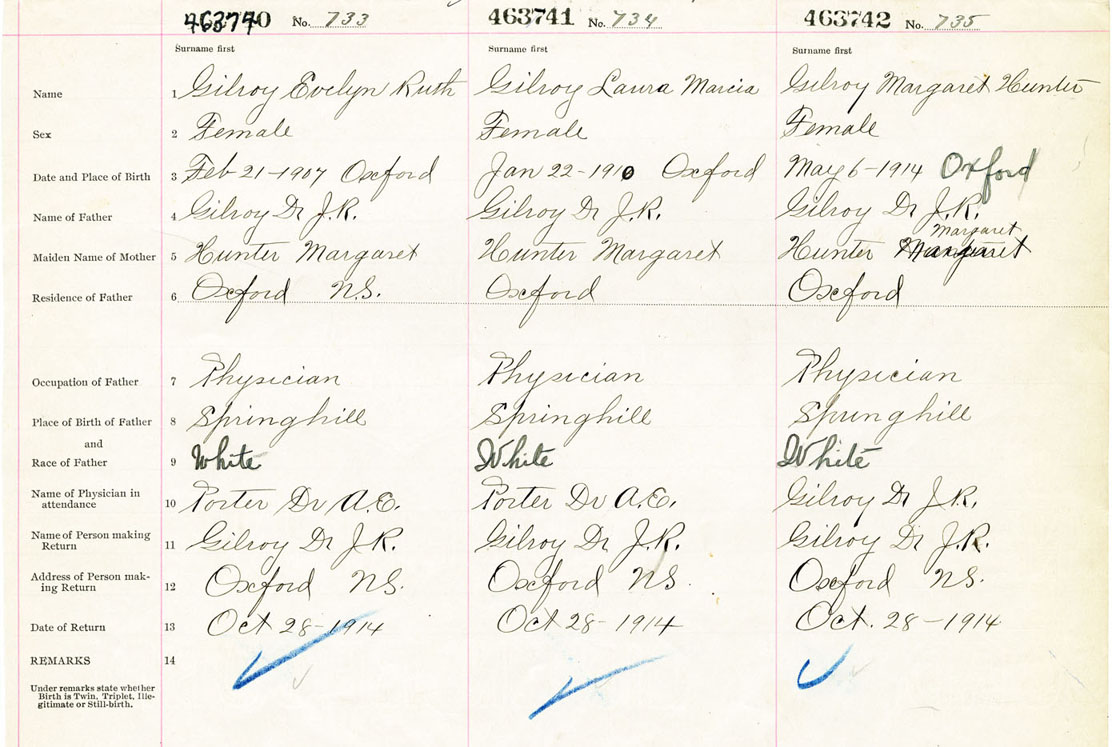 463740 No. 733 463741 No. 734 463742 No. 735
Surname first Surname first Surname first
Name 1 Gilroy Evelyn Ruth Gilroy Laura Marcia Gilroy Margaret Hunter
Sex 2 Female Female Female
Date and Place of Birth 3 Feb 21-1907 Oxford Jan 22-1910 Oxford May 6-1914 Oxford
Name of Father 4 Gilroy Dr J.R. Gilroy Dr J.R. Gilroy Dr J.R.
Margaret
Maiden Name of Mother 5 Hunter Margaret Hunter Margaret Hunter Margaret
Residence of Father 6 Oxford N.S. Oxford Oxford
Occupation of Father 7 Physician Physician Physician
Place of Birth of Father 8 Springhill Springhill Springhill
and
Race of Father 9 White White White
Name of Physician in
attendance 10 Porter Dr A.E. Porter Dr A.E. Gilroy Dr J.R.
Name of Person making
Return 11 Gilroy Dr J.R. Gilroy Dr J.R. Gilroy Dr J.R.
Address of Person mak-
ing Return 12 Oxford N.S. Oxford N.S. Oxford N.S.
Date of Return 13 Oct 28-1914 Oct 28-1914 Oct. 28-1914
REMARKS 14
Under remarks state whether
Birth is Twin, Triplet, Ille-
gitimate or Still-birth.